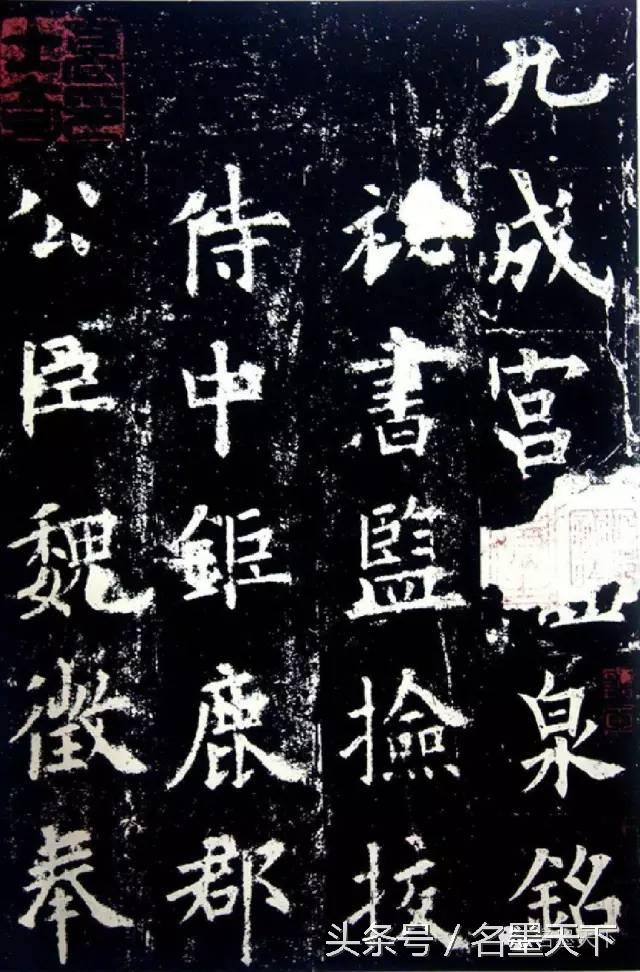 九成宮泉銘
祕書監撿挍
侍中鉅鹿郡
公臣魏徵奉
头条号 / 名墨天下